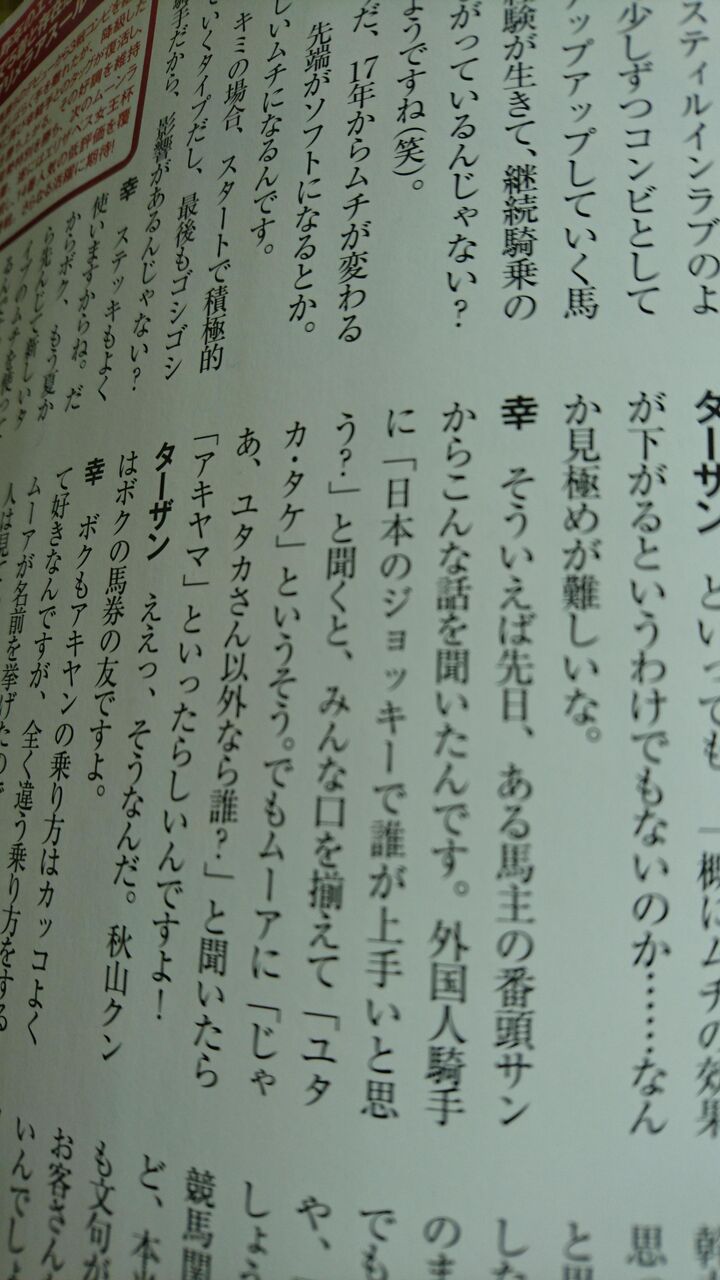 スティルインラブのよ
少しずつコンビとして
アップアップしていく馬
験が生きて、継続騎乗の
がっているんじゃない？
ようですね（笑）。
だ、17年からムチが変わる
先端がソフトになるとか。
しいムチになるんです。
キミの場合、スタートで積極的
ていくタイプだし、最後もゴシゴシ
騎手だから、影響があるんじゃない？
幸　ステッキもよく
使いますからね。だ
からボク、もう夏か
ら先んじて新しいタ
イプのムチを使って
ターザン　といっても、一概にムチの効果
が下がるというわけでもないのか……なん
か見極めが難しいな。
幸　そういえば先日、ある馬主の番頭サン
からこんな話を聞いたんです。外国人騎手
に「日本のジョッキーで誰が上手いと思
う？」と聞くと、みんな口を揃えて「ユタ
カ・タケ」というそう。でもムーアに「じゃ
あ、ユタカさん以外なら誰？」と聞いたら
「アキヤマ」といったらしいんですよ！
ターザン　ええっ、そうなんだ。秋山クン
はボクの馬券の友ですよ。
幸　ボクもアキヤンの乗り方はカッコよく
て好きなんですが、全く違う乗り方をする
ムーアが名前を挙げたので
人は見て
思
と思
した
のま
でも
や、
しょう
競馬関
ど、本当
も文句が
お客さん
いんでしょ
次のムーンラ
エリザベス女王杯
14番人気の低評価を覆
さらなる活躍に期待！